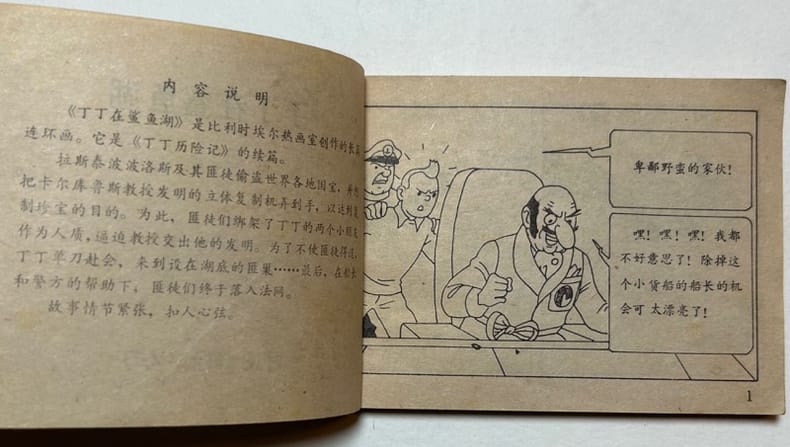 内容说明
《丁丁在鲨鱼湖》是比利时埃尔热画室创作的长篇
连环画。它是《丁丁历险记》的续篇。
拉斯泰波波洛斯及其匪徒偷盗世界各地国宝，并
把卡尔库鲁斯教授发明的立体复制机弄到手，以达到
制珍宝的目的。为此，匪徒们绑架了丁丁的两个小朋友
作为人质，逼迫教授交出他的发明。为了不使匪徒得逞，
丁丁单刀赴会，来到设在湖底的匪巢……最后，在船长
和警方的帮助下，匪徒们终于落入法网。
故事情节紧张，扣人心弦。
卑鄙野蛮的家伙！
嘿！嘿！嘿！我都
不好意思了！除掉这
个小货船的船长的机
会可太漂亮了！
1